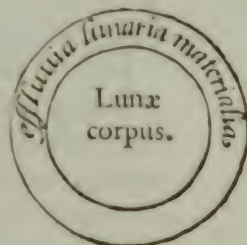 effluvia lunaria materialia,
Lunæ
corpus.